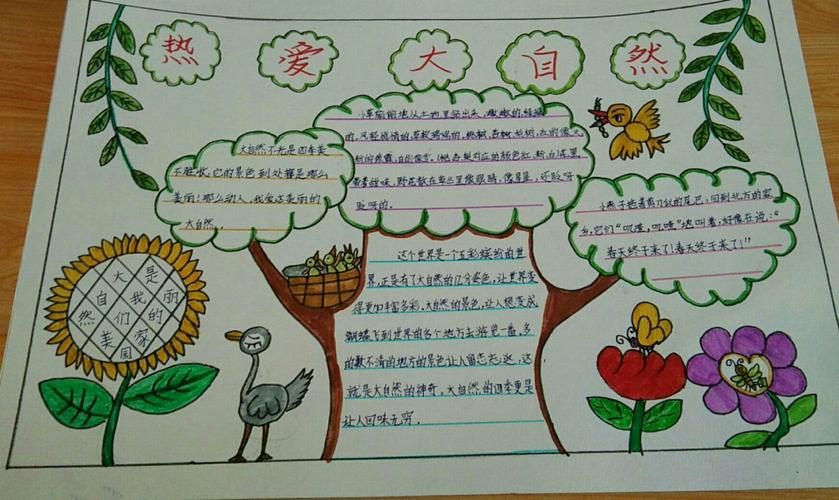 热 爱 大 自 然
大自然不光是四季美
不胜收,它的景色到处都是那么
美丽!那么动人,我爱这美丽的
大自然。
小草偷偷地从土地里钻出来,嫩嫩的绿绿
的,风轻悄悄的,草软绵绵的,桃树,杏树,梨树,红的像火
粉的像霞,白的像雪,(桃杏梨对应的颜色红,粉,白)花里
带着甜味,野花散在草丛里像眼睛,像星星,还眨呀
眨呀的。
小燕子拖着剪刀似的尾巴,回到北方的家
乡,它们“叽喳,叽喳”地叫着,好像在说:“
春天终于来了!春天终于来了!”
这个世界是一个五彩缤纷的世
界,正是有了大自然的几分姿色,让世界变
得更加丰富多彩,大自然的景色,让人想变成
蝴蝶飞到世界的各个地方去游览一番,多
的数不清的地方的景色让人留恋忘返,这
就是大自然的神奇,大自然的四季更是
让人回味无穷。
大 是
自 我 丽
然 们 的
美 家
国